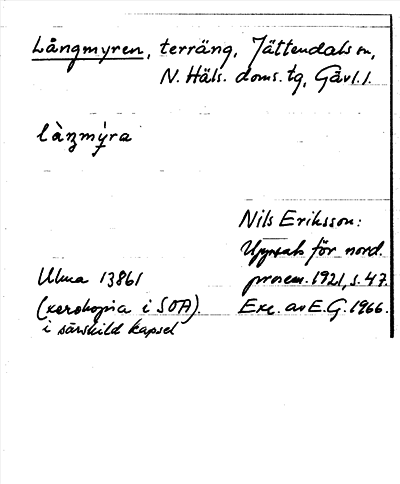 Långmyren, terräng, Jättendals sn,
N. Häls. doms. tg, Gävl. l.
làŋmy̌ra
Nils Eriksson:
Uppsats för nord.
prosem. 1921, s. 47.
Ulma 13861
(xerokopia i SOA).
Exc. av E.G. 1966.
i särskild kapsel